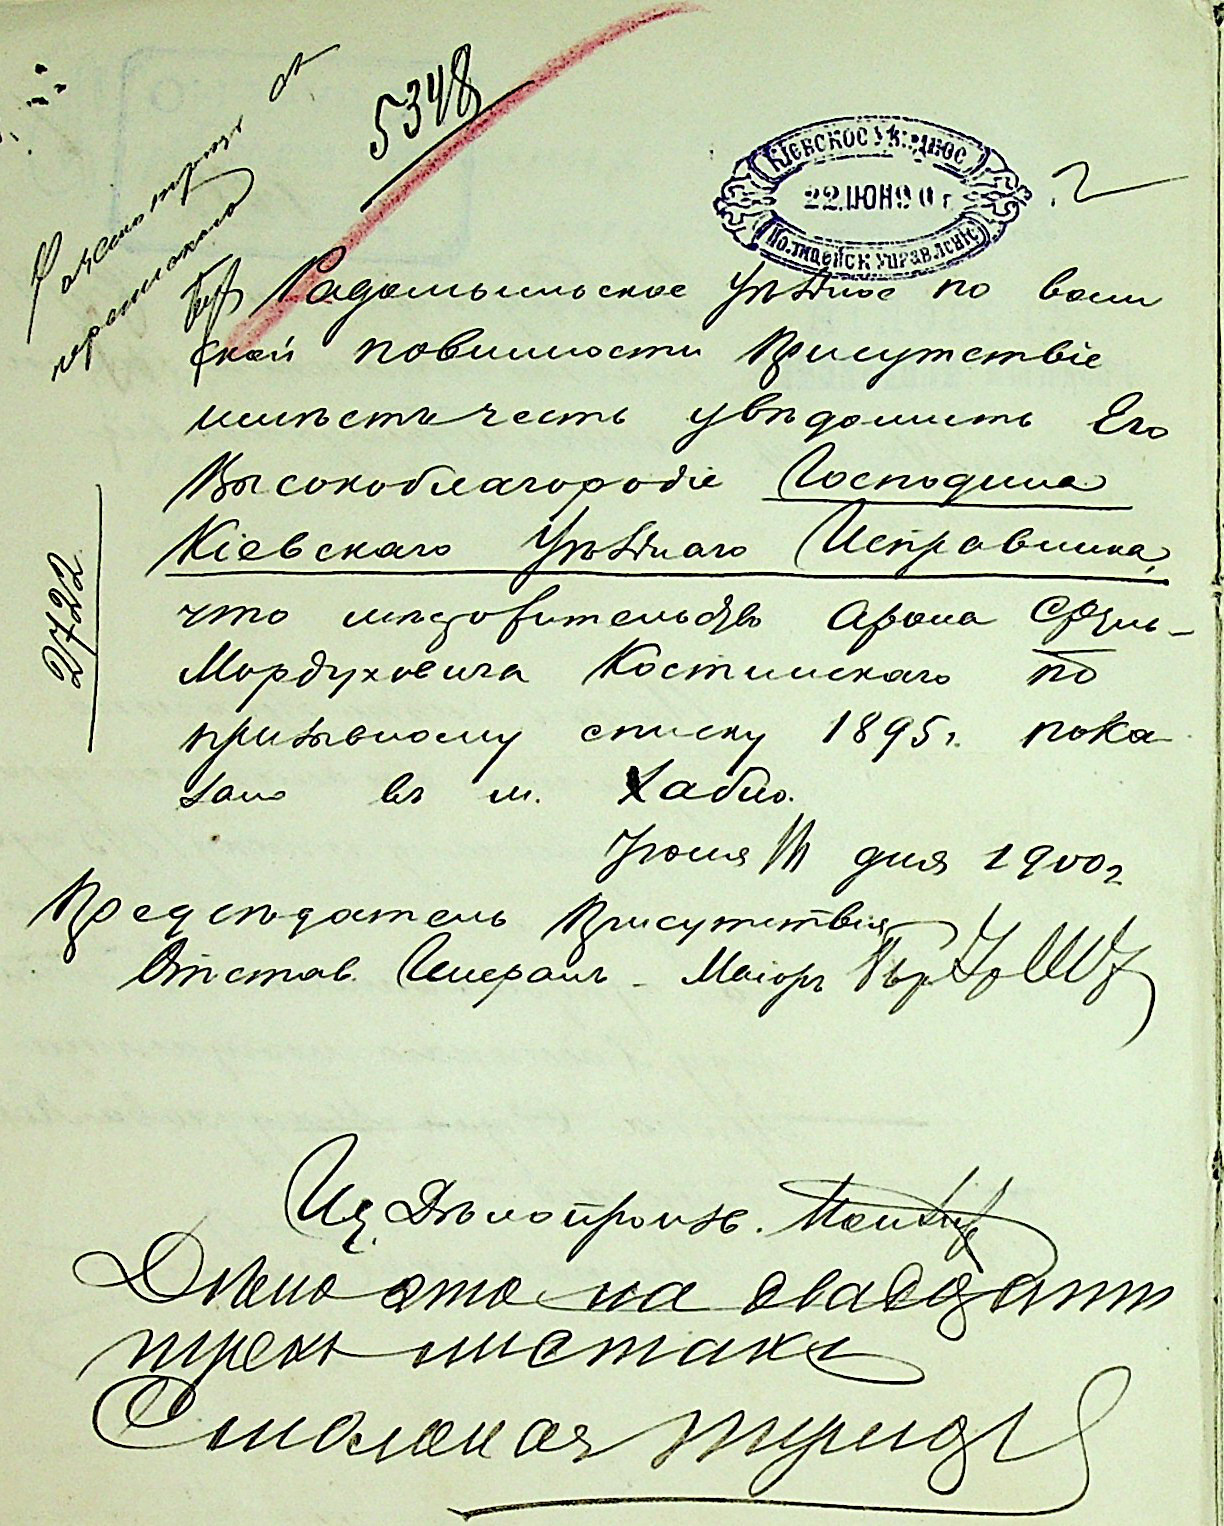 5348
КІЕВСКОЕ УѢЗДНОЕ
22 ІЮН 90 г.
ПОЛИЦЕЙСК УПРАВЛЕНІЕ
2
Радомысльское Уѣздное по воин
ской повинности Присутствіе
имѣетъ честь увѣдомить Его
Высокоблагородіе Господина
Кіевскаго Уѣзднаго Исправника,
2722
что мѣстожительство Арона Сруль-
Мордуховича Костинскаго по
призывному списку 1895 г. пока
зано въ м. Хабно.
Іюня дня 1900 г
Предсѣдатель Присутствія
Отстав. Генералъ-Маіоръ
Дѣлопроизв.
Дѣло это на двадцати
трехъ листахъ